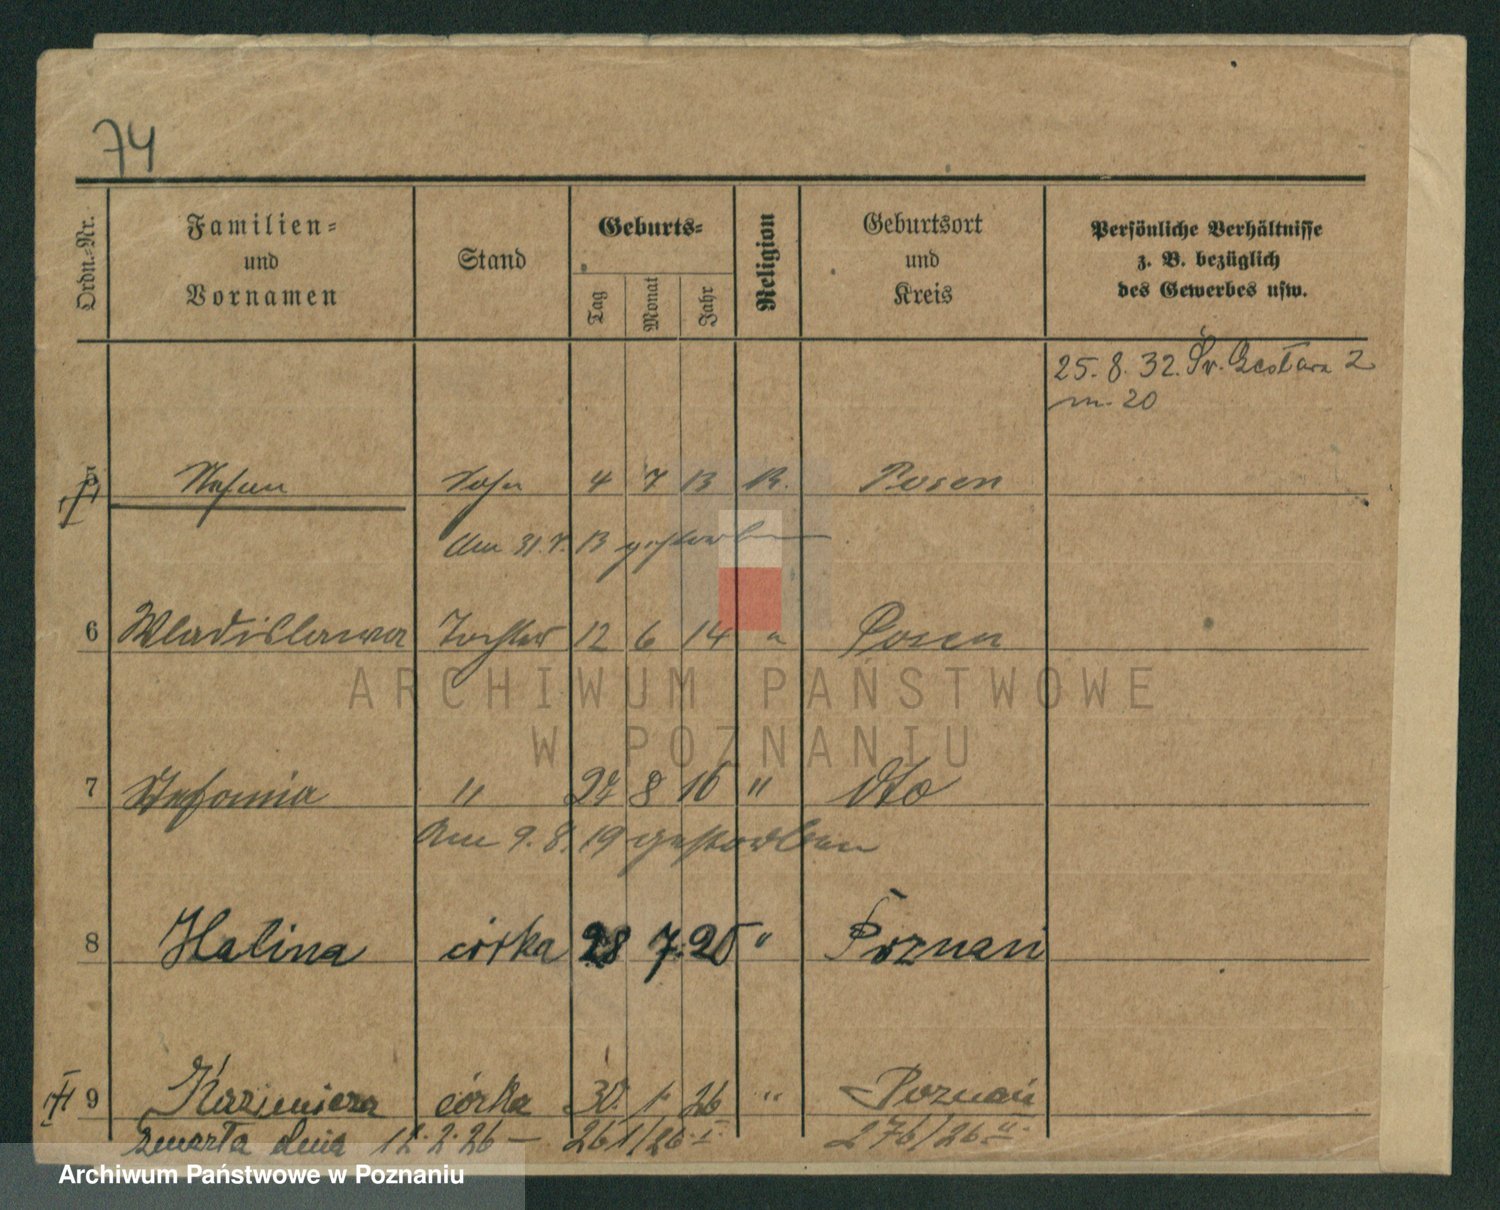 74
Ordn.-Nr.
Familien-
und
Vornamen
Stand
Geburts-
Tag
Monat
Jahr
Religion
Geburtsort
und
Kreis
Persönliche Verhältnisse
z. B. bezüglich
des Gewerbes usw.
25. 8. 32. Św. 2
m. 20
5 Stefan Sohn 4 7 13 Posen
Am 31. 7. 13 gestorben
6 Wladislawa Tochter 12 6 14 " Posen
ARCHIWUM PAŃSTWOWE
W POZNANIU
7 Stefania " 27 8 16 " dto
Am 9. 8. 19 gestorben
8 Halina córka 28 7. 25 " Poznań
9 Kazimiera córka 30. 1. 26 " Poznań
zmarła dnia 12. 2. 26 – 261/26 I. 276/26 II.
Archiwum Państwowe w Poznaniu